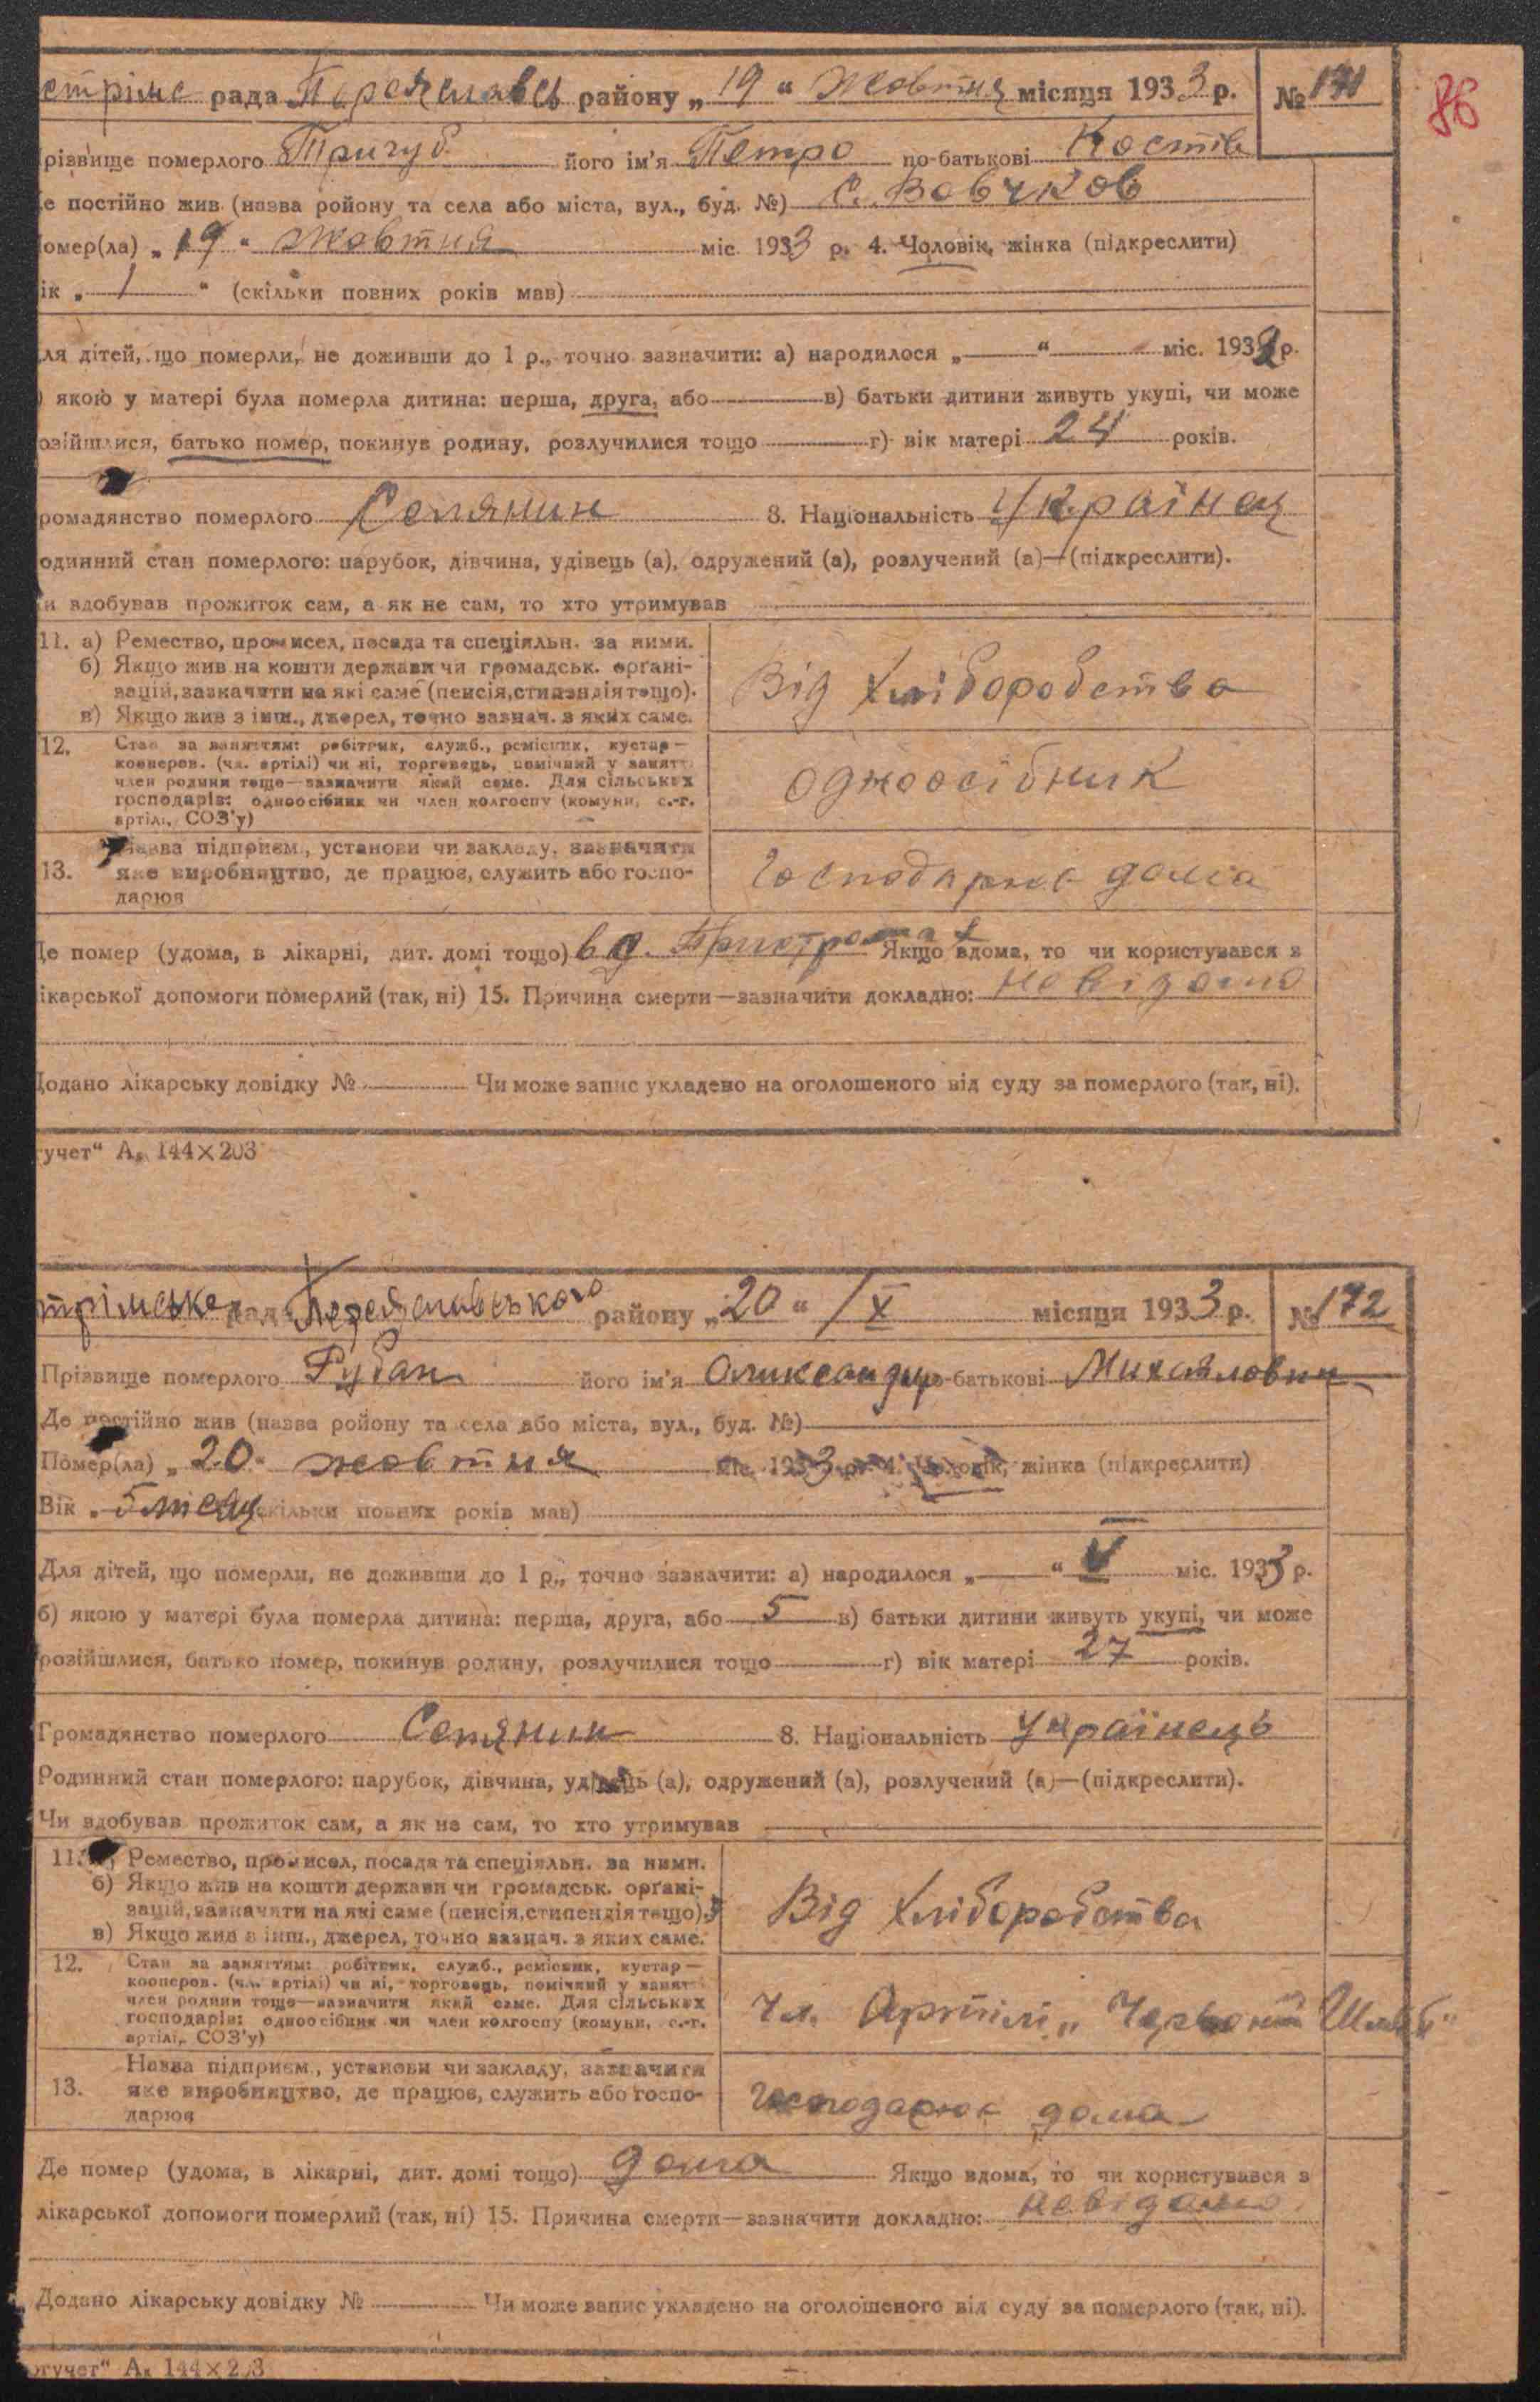 стріме рада Переяславсь району „ 19 “ Жовтня місяця 1933 р. № 171
86
різвище померлого Тричуб його ім'я Петро по-батькові Костів
е постійно жив (назваройону та села або міста, вул., буд. №) С. Вовчков
омер(ла) „ 19 “ Жовтня міс 1933 р. 4. Чоловік, жінка (підкреслити)
ік „ 1 “ (скільки повних років мав)
ля дітей, що померли, не доживши до 1 р., точно зазначити: а) народилося „ “ міс. 1932 р.
) якою у матері була померла дитина: перша, друга, або в) батьки дитини живуть укупі, чи може
озійшлися, батько помер, покинув родину, розлучилися тощо г) вік матері 24 років.
ромадянство померлого Селянин 8. Національність Українец
одинний стан померлого: парубок, дівчина, удівець (а), одружений (а), розлучений (а)—(підкреслити).
и вдобував прожиток сам, а як не сам, то хто утримував
11. а) Ремество, промисел, посада та спеціяльн. за ними.
б) Якщо жив на кошти держави чи громадськ. орґані-
зацій, зазначити на які саме (пенсія, стипендія тощо).
в) Якщо жив з інш., джерел, точно зазнач. з яких саме.
Від Хліборобства
12. Стан за заняттям: робітник, служб., ремісник, кустар—
кооперов. (чл. артілі) чи ні, торговець, помічний у занятт
член родини тощо—зазначити який саме. Для сільських
господарів: одноосібник чи член колгоспу (комуни, с.-г.
артілі, СОЗ'у)
одноосібник
13. Назва підприєм., установи чи закладу, зазначити
яке виробництво, де працює, служить або госпо-
дарює
Господарює дома
Де помер (удома, в лікарні, дит. домі тощо) в д. Якщо вдома, то чи користувався з
ікарської допомоги померлий (так, ні) 15. Причина смерти—зазначити докладно: Невідомо
Додано лікарську довідку № Чи може запис укладено на оголошеного від суду за померлого (так, ні).
учет“ А₅ 144×203
трімська рада Переяславського району „ 20 “ / X місяця 1933 р. № 172
Прізвище померлого Рубан його ім'я Олександр по-батькові Михайлович
Де постійно жив (назва ройону та села або міста, вул., буд. №)
Помер(ла) „ 20 “ жовтня міс. 1933 р. 4. Чоловік, жінка (підкреслити)
Вік „ 5 місяц (скільки повних років мав)
Для дітей, що померли, не доживши до 1 р., точно зазначити: а) народилося „ “ V міс. 1933 р.
б) якою у матері була померла дитина: перша, друга, або 5 в) батьки дитини живуть укупі, чи може
розійшлися, батько помер, покинув родину, розлучилися тощо г) вік матері 27 років.
Громадянство померлого Селянин 8. Національність Українець
Родинний стан померлого: парубок, дівчина, удівець (а), одружений (а), розлучений (а)—(підкреслити).
Чи вдобував прожиток сам, а як не сам, то хто утримував
11. а) Ремество, промисел, посада та спеціяльн. за ними.
б) Якщо жив на кошти держави чи громадськ. орґані-
зацій, зазначити на які саме (пенсія, стипендія тощо).
в) Якщо жив з інш., джерел, точно зазнач. з яких саме.
Від Хліборобства
12. Стан за заняттям: робітник, служб., ремісник, кустар—
кооперов. (чл. артілі) чи ні, торговець, помічний у занят
член родини тощо—зазначити який саме. Для сільських
господарів: одноосібник чи член колгоспу (комуни, с.-г.
артілі, СОЗ'у)
Чл. Артілі „Червоний Шлях“
13. Назва підприєм., установи чи закладу, зазначити
яке виробництво, де працює, служить або госпо-
дарює
Господарює дома
Де помер (удома, в лікарні, дит. домі тощо) дома Якщо вдома, то чи користувався з
лікарської допомоги померлий (так, ні) 15. Причина смерти—зазначити докладно: невідомо
Додано лікарську довідку № Чи може запис укладено на оголошеного від суду за померлого (так, ні).
огучет“ А₅ 144×203